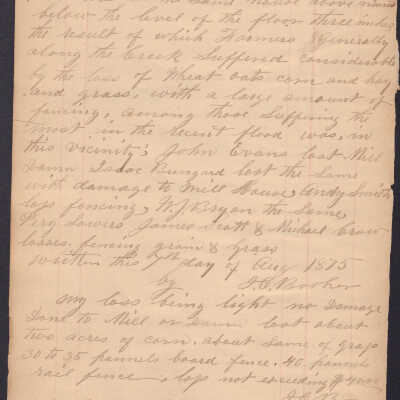 the same house above named
below the level of the floor three inches
the result of which Farmers Generally
along the Creek Suffered considerable
by the loss of Wheat oats corn and hay
and grass, with a large amount of
fencing, among those Suffering the
most in the recent flood was, in
this vicinity; John Evans lost Mill
Damn Isaac the Same
with damage to Mill House, Smith
loss fencing, W.J. Bryan the Same,
Perry Sowers, James Scott & Michael Crow
losses. fencing grain & Grass
Written this 7th day of Aug 1875
by J.C. Booher
My loss being light no Damage
Done to Mill or Damn lost about
two acres of corn. about Same of grass
30 to 35 pannels board fence. 40 pannels
rail fence. loss not exceeding